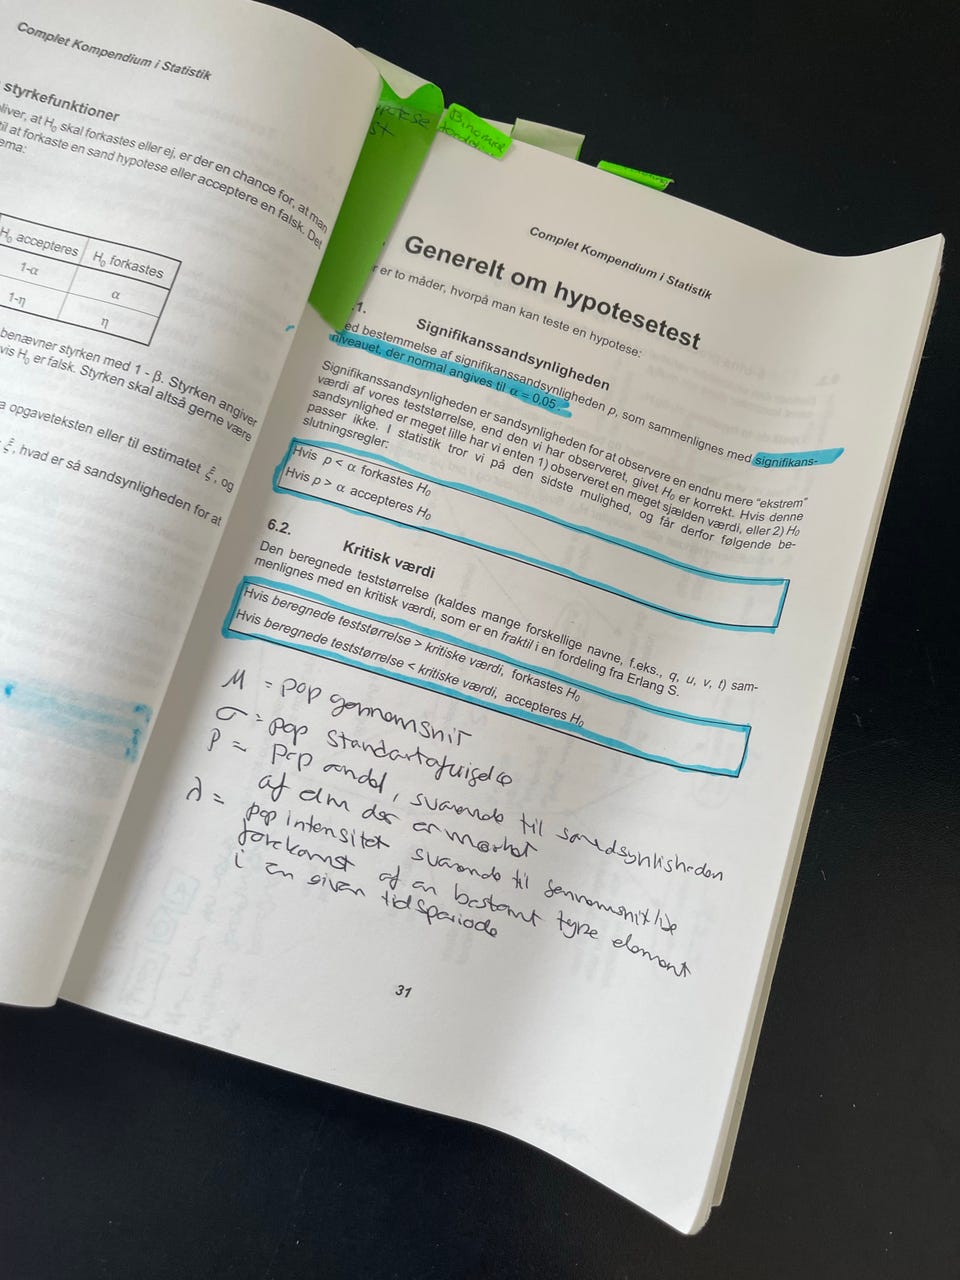 Complet Kompendium i Statistik
styrkefunktioner
bliver, at H₀ skal forkastes eller ej, er der en chance for, at man
til at forkaste en sand hypotese eller acceptere en falsk. Det
ema:
H₀ accepteres H₀ forkastes
1-α α
1-η η
benævner styrken med 1 - β. Styrken angiver
vis H₀ er falsk. Styrken skal altså gerne være
a opgaveteksten eller til estimatet ξ, og
ξ, hvad er så sandsynligheden for at
Binomial
Complet Kompendium i Statistik
Generelt om hypotesetest
r er to måder, hvorpå man kan teste en hypotese:
.1. Signifikanssandsynligheden
ed bestemmelse af signifikanssandsynligheden p, som sammenlignes med signifikans-
niveauet, der normal angives til α = 0,05.
Signifikanssandsynligheden er sandsynligheden for at observere en endnu mere "ekstrem"
værdi af vores teststørrelse, end den vi har observeret, givet H₀ er korrekt. Hvis denne
sandsynlighed er meget lille har vi enten 1) observeret en meget sjælden værdi, eller 2) H₀
passer ikke. I statistik tror vi på den sidste mulighed, og får derfor følgende be-
slutningsregler:
Hvis p < α forkastes H₀
Hvis p > α accepteres H₀
6.2. Kritisk værdi
Den beregnede teststørrelse (kaldes mange forskellige navne, f.eks., q, u, v, t) sam-
menlignes med en kritisk værdi, som er en fraktil i en fordeling fra Erlang S.
Hvis beregnede teststørrelse > kritiske værdi, forkastes H₀
Hvis beregnede teststørrelse < kritiske værdi, accepteres H₀
μ = pop gennemsnit
σ = pop standartafvigelse
P = pop andel, svarende til sandsynligheden
af elm der er mærket
λ = pop intensitet svarende til gennemsnitlige
forekomst af en bestemt type element
i en given tidsperiode
31